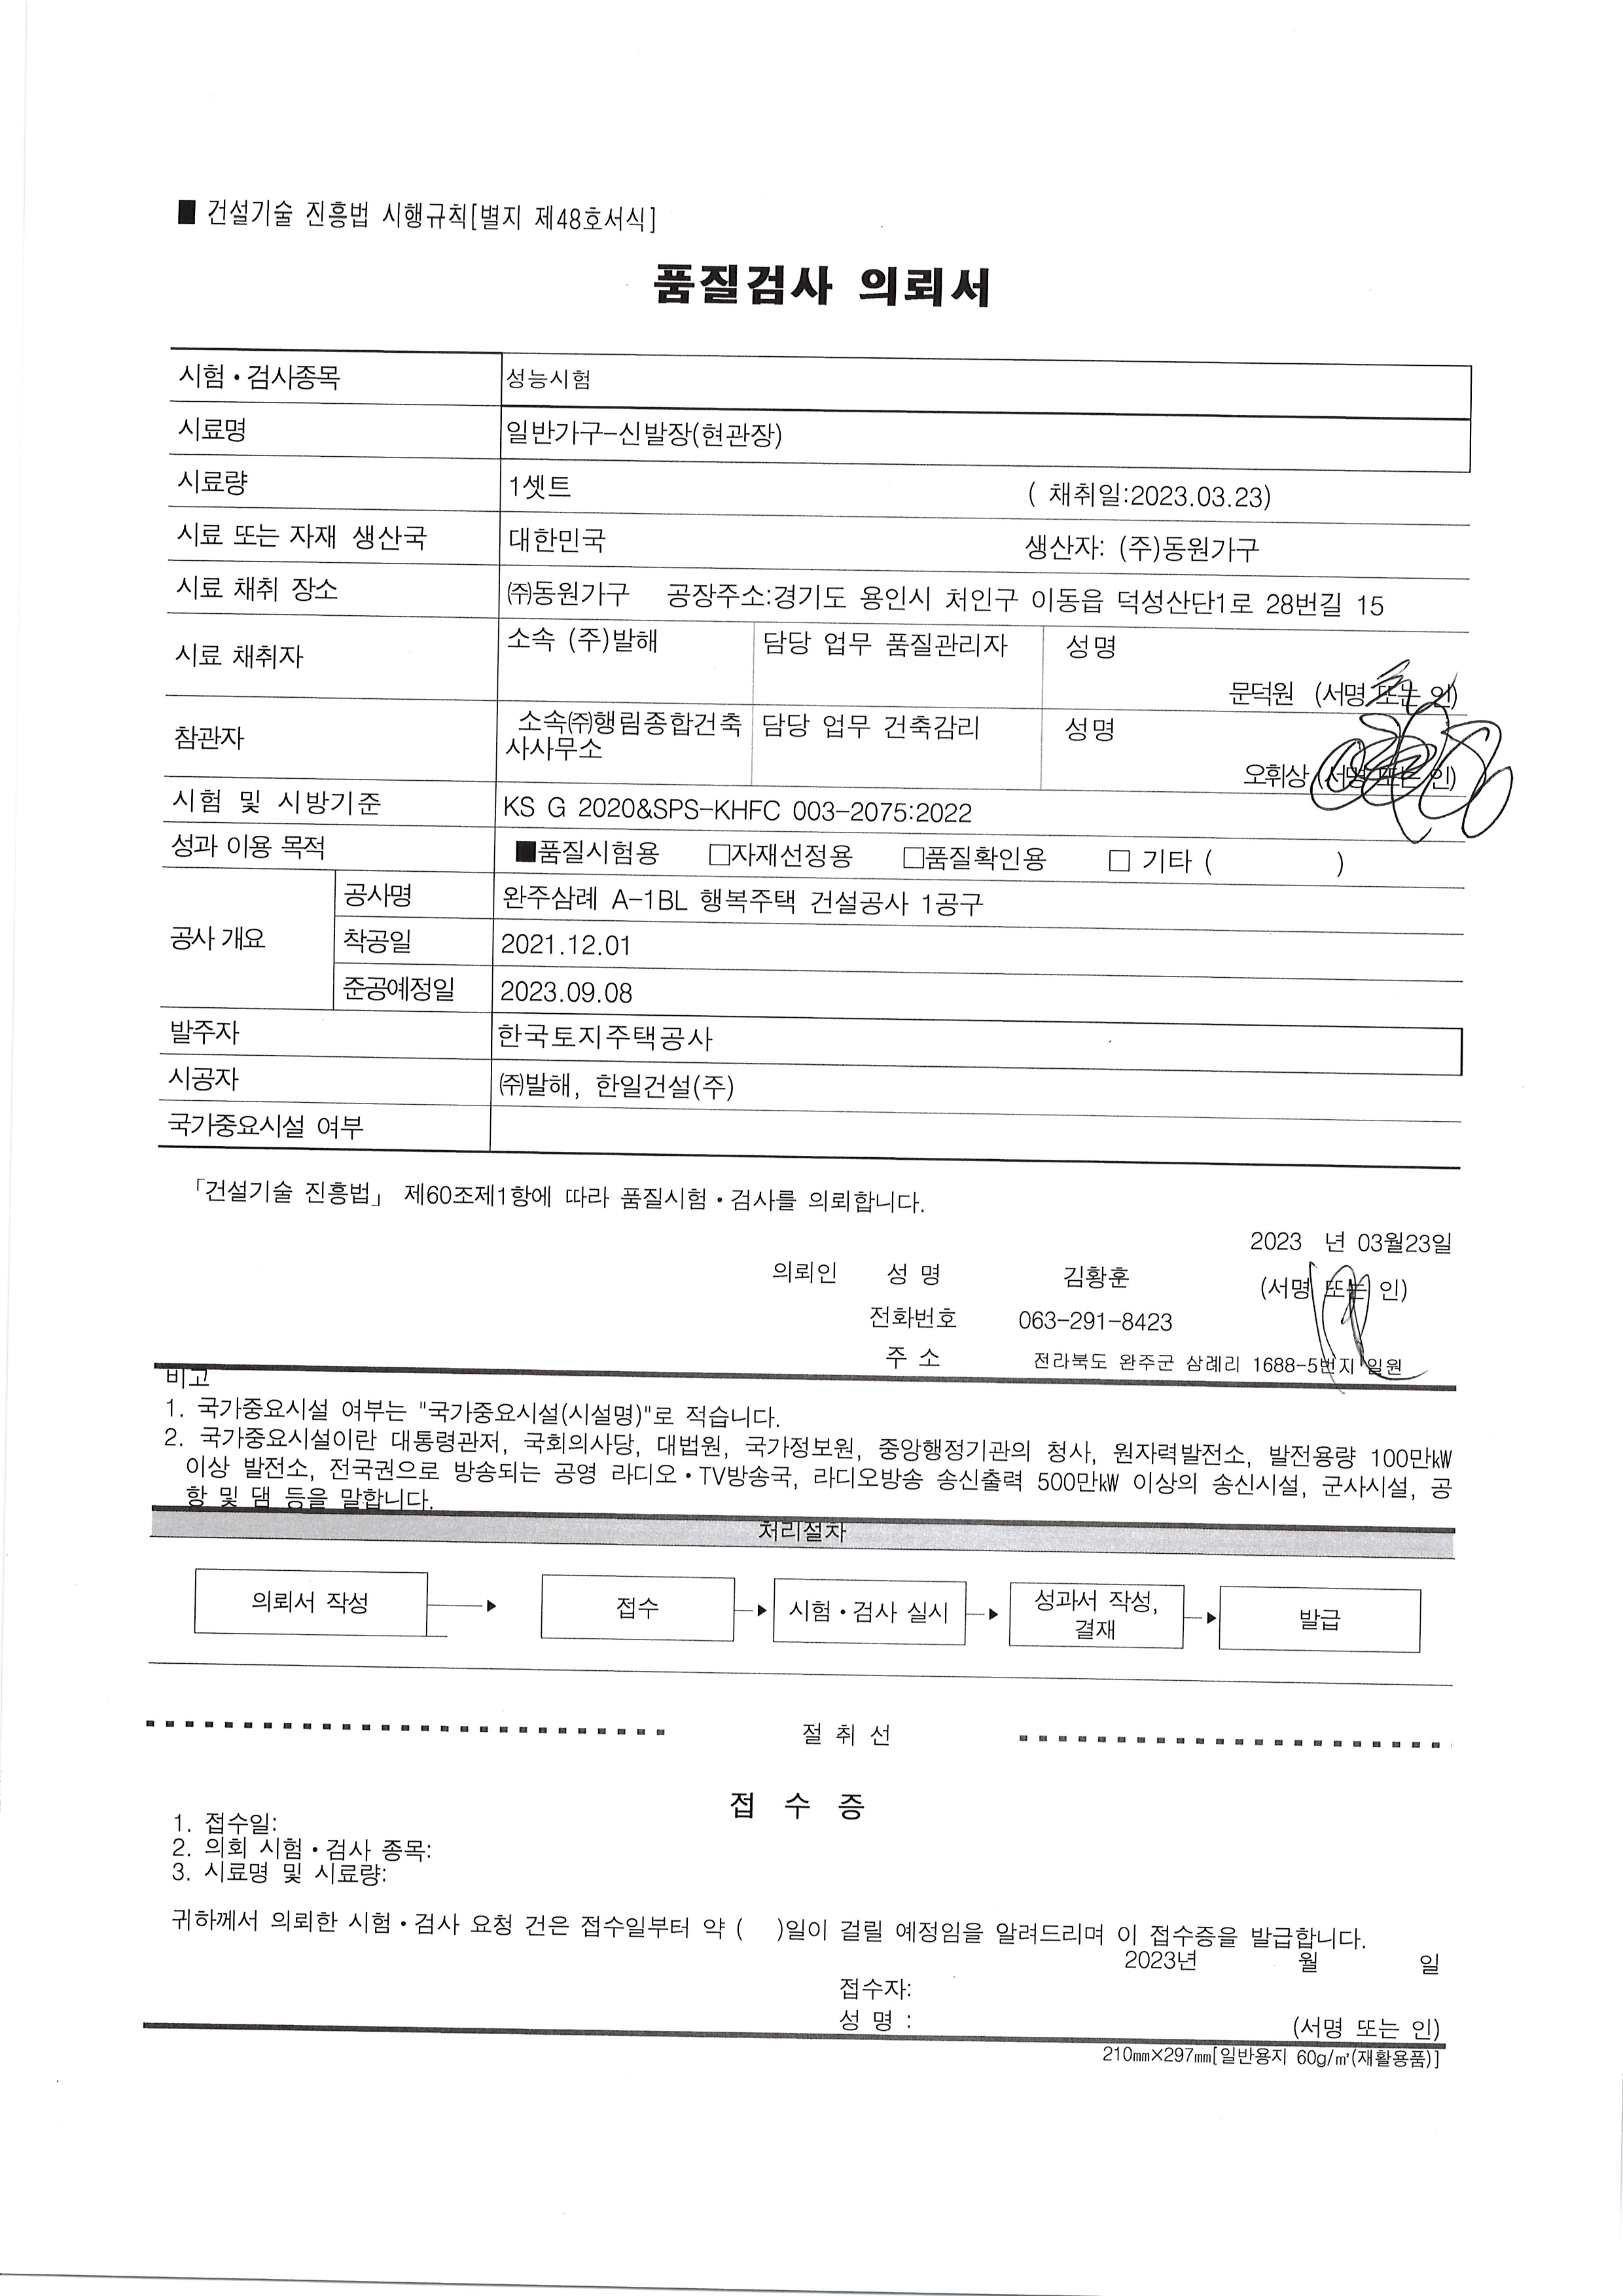 ■ 건설기술 진흥법 시행규칙[별지 제48호서식]
품질검사 의뢰서
시험•검사종목 성능시험
시료명 일반가구-신발장(현관장)
시료량 1셋트 ( 채취일:2023.03.23)
시료 또는 자재 생산국 대한민국 생산자: (주)동원가구
시료 채취 장소 ㈜동원가구 공장주소:경기도 용인시 처인구 이동읍 덕성산단1로 28번길 15
시료 채취자 소속 (주)발해 담당 업무 품질관리자 성명
문덕원 (서명 또는 인)
참관자 소속㈜행림종합건축사사무소 담당 업무 건축감리 성명
오휘상 (서명 또는 인)
시험 및 시방기준 KS G 2020&SPS-KHFC 003-2075:2022
성과 이용 목적 ■품질시험용 □자재선정용 □품질확인용 □ 기타 ( )
공사 개요 공사명 완주삼례 A-1BL 행복주택 건설공사 1공구
착공일 2021.12.01
준공예정일 2023.09.08
발주자 한국토지주택공사
시공자 ㈜발해, 한일건설(주)
국가중요시설 여부
「건설기술 진흥법」 제60조제1항에 따라 품질시험•검사를 의뢰합니다.
2023 년 03월23일
의뢰인 성 명 김황훈 (서명 또는 인)
전화번호 063-291-8423
주 소 전라북도 완주군 삼례리 1688-5번지 일원
비고
1. 국가중요시설 여부는 "국가중요시설(시설명)"로 적습니다.
2. 국가중요시설이란 대통령관저, 국회의사당, 대법원, 국가정보원, 중앙행정기관의 청사, 원자력발전소, 발전용량 100만㎾
이상 발전소, 전국권으로 방송되는 공영 라디오•TV방송국, 라디오방송 송신출력 500만㎾ 이상의 송신시설, 군사시설, 공
항 및 댐 등을 말합니다.
처리절차
의뢰서 작성 접수 시험•검사 실시 성과서 작성, 발급
결재
절 취 선
접 수 증
1. 접수일:
2. 의회 시험•검사 종목:
3. 시료명 및 시료량:
귀하께서 의뢰한 시험•검사 요청 건은 접수일부터 약 ( )일이 걸릴 예정임을 알려드리며 이 접수증을 발급합니다.
2023년 월 일
접수자:
성 명 : (서명 또는 인)
210㎜×297㎜[일반용지 60g/㎡(재활용품)]